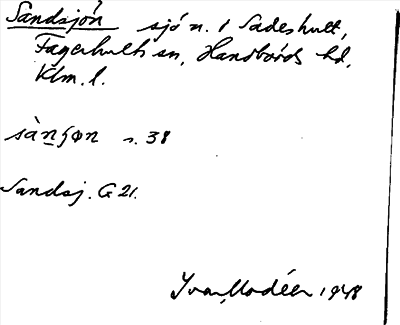 Sandsjön sjö n. 1 Sadeshult,
Fagerhults sn, Handbörds hd,
Klm. l.
sànʃøn s. 38
Sandsj. G 21.
Ivar Modéer 1948